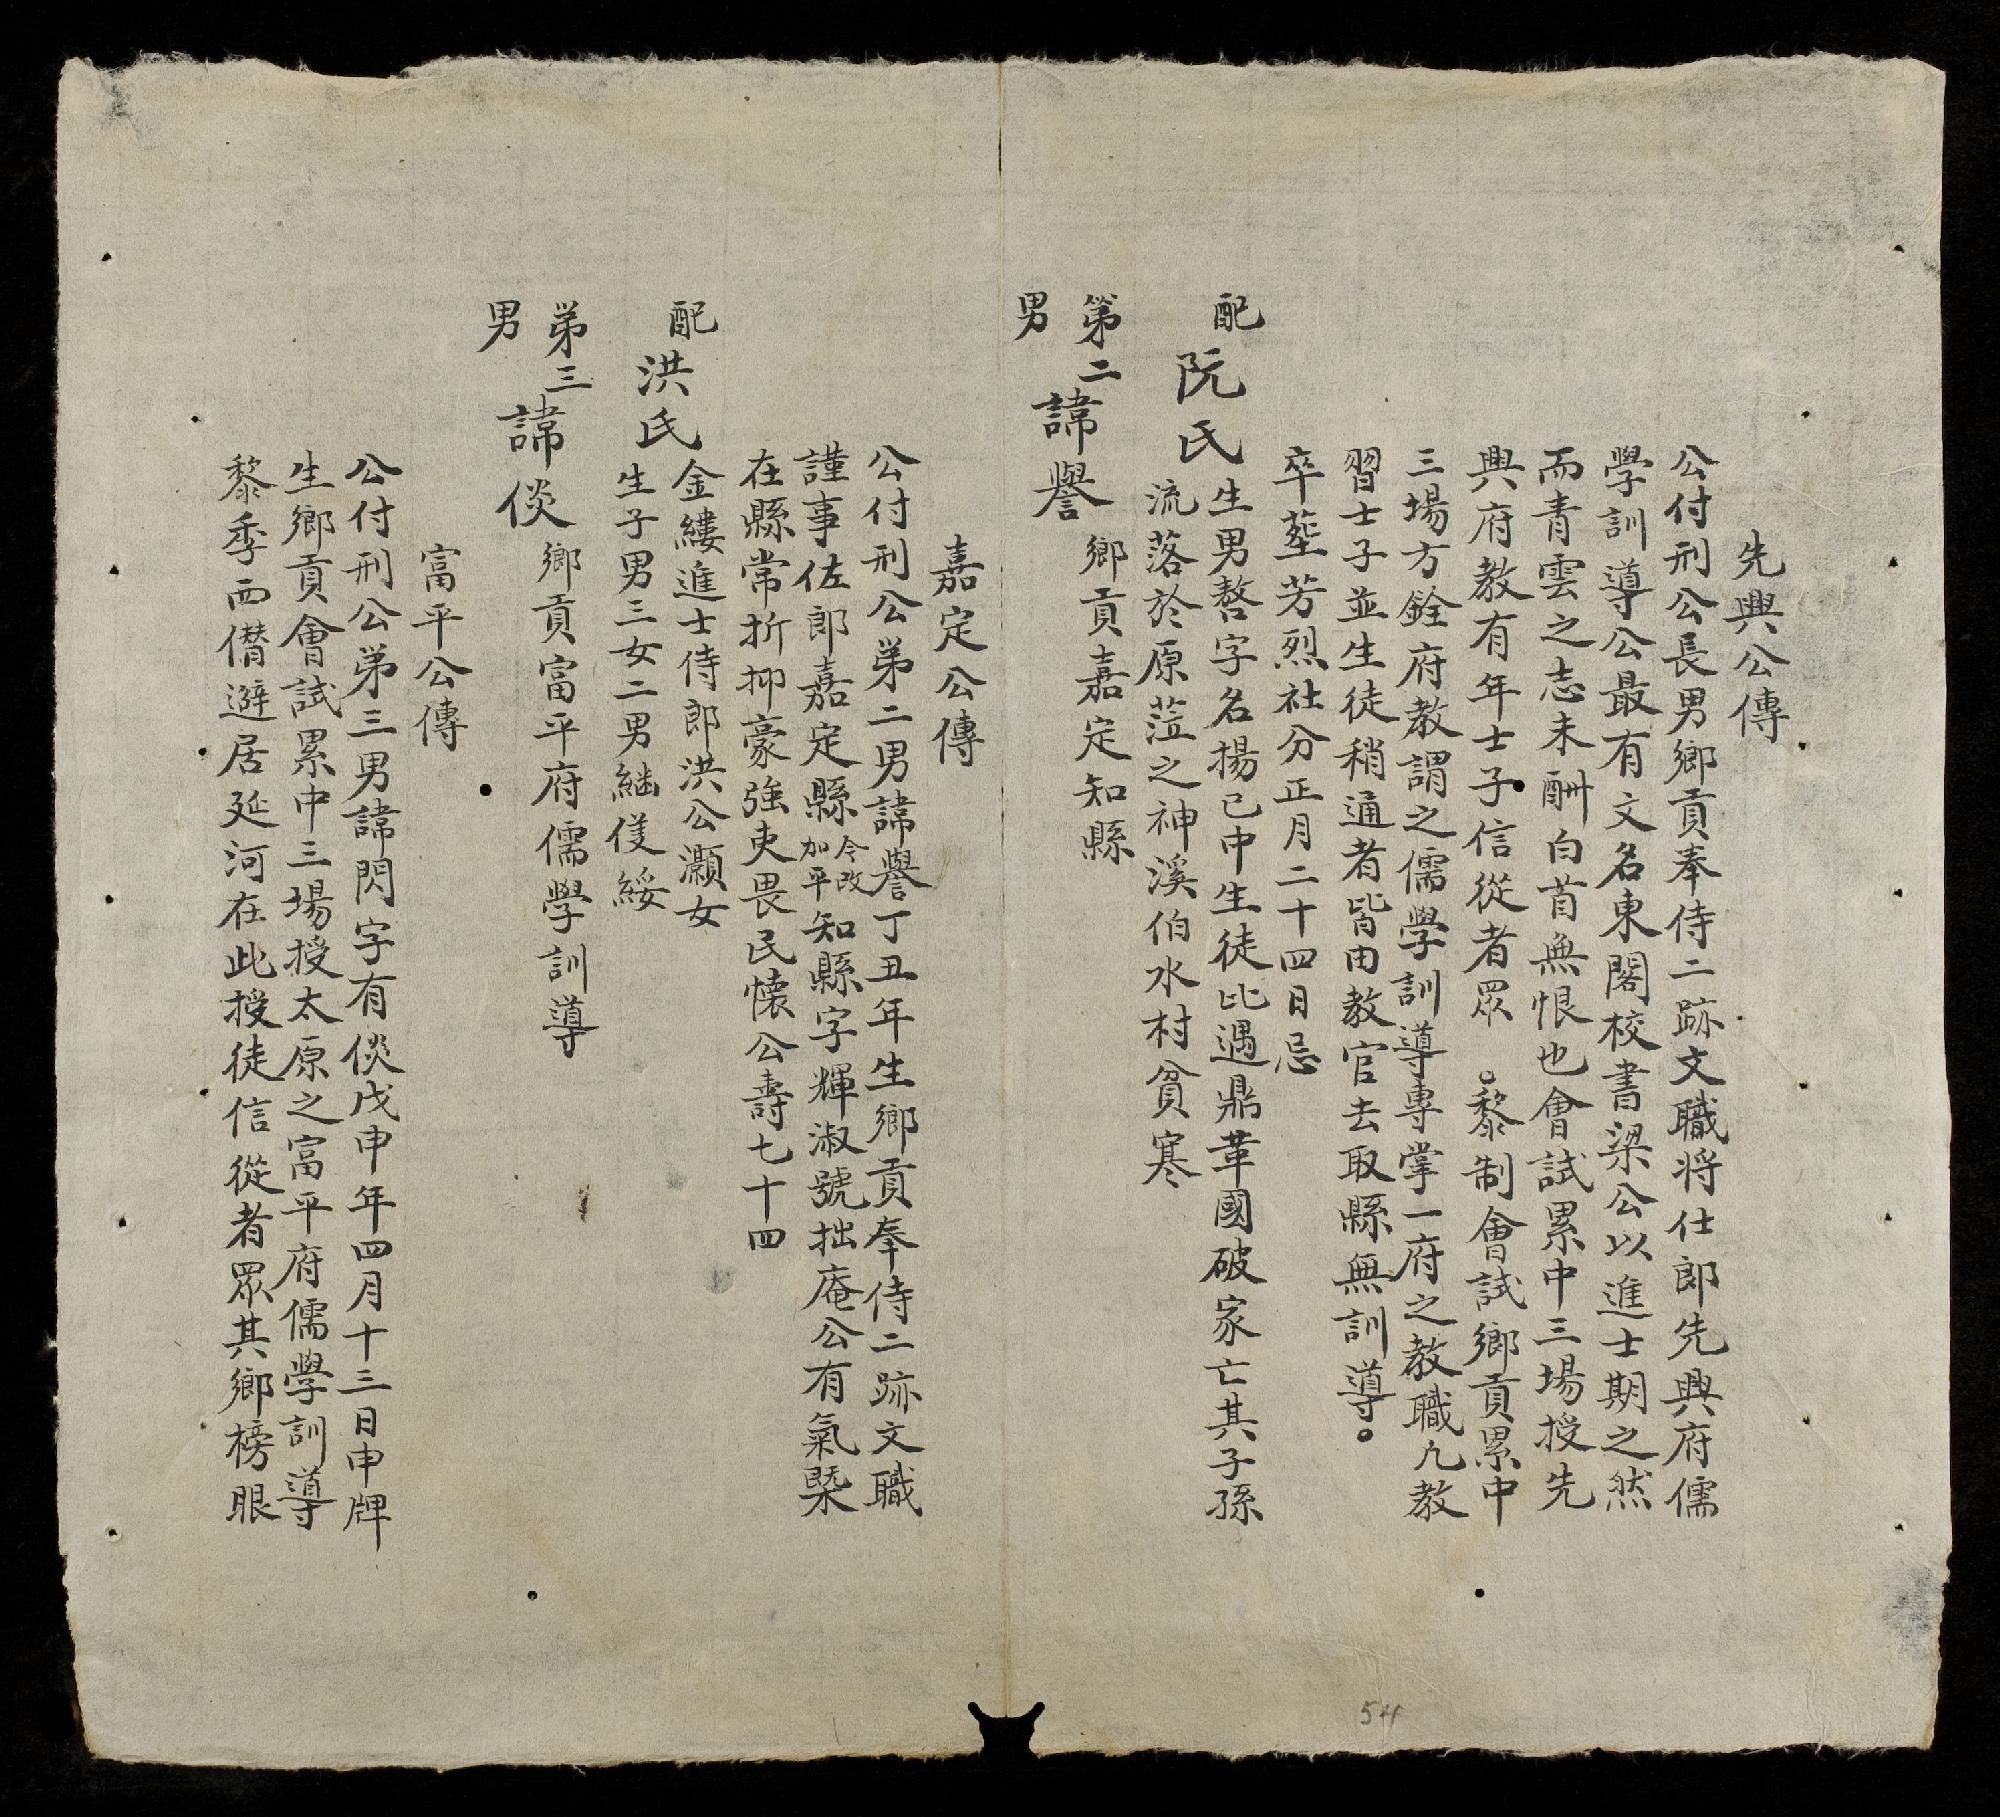 先興公傳
公付刑公長男鄉貢奉侍二跡文職将仕郎先興府儒
學訓導公最有文名東閣校書梁公以進士期之然
而青雲之志未酬白首無恨也會試累中三場授先
興府教有年士子信從者眾。黎制會試鄉貢累中
三場方銓府教謂之儒學訓導專掌一府之教職凢教
習士子並生徒稍通者皆由教官去取縣無訓導。
卒塟芳烈社分正月二十四日忌
配阮氏生男嗸字名揚已中生徒比遇鼎革國破家亡其子孫
流落於原蒞之神溪伯水村貧寒
第二男諱譽鄉貢嘉定知縣
嘉定公傳
公付刑公弟二男諱譽丁丑年生鄉貢奉侍二跡文職
謹事佐郎嘉定縣今改加平知縣字輝淑號拙庵公有氣槩
在縣常折抑豪強吏畏民懷公壽七十四
配洪氏金縷進士侍郎洪公灝女
生子男三女二男繼㑺綏
弟三男諱倓鄉貢富平府儒學訓導
富平公傳
公付刑公弟三男諱閃字有倓戊申年四月十三日申牌
生鄉貢會試累中三場授太原之富平府儒學訓導
黎季西僭避居延河在此授徒信從者眾其鄉榜眼
54